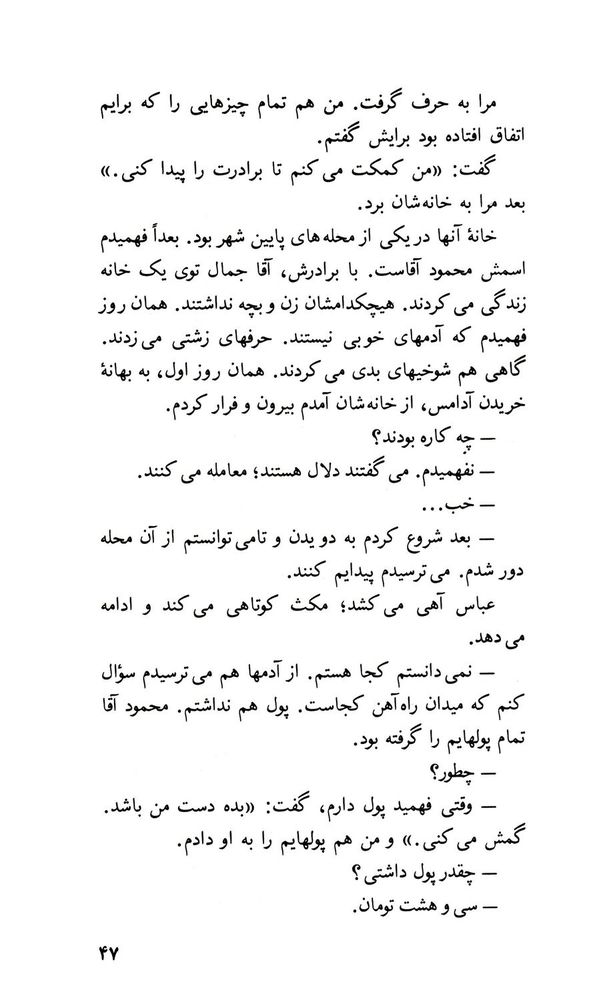 مرا به حرف گرفت. من هم تمام چیزهایی را که برایم
اتفاق افتاده بود برایش گفتم.
گفت: «من کمکت می‌کنم تا برادرت را پیدا کنی.»
بعد مرا به خانه‌شان برد.
خانهٔ آنها در یکی از محله‌های پایین شهر بود. بعداً فهمیدم
اسمش محمود آقاست. با برادرش، آقا جمال توی یک خانه
زندگی می‌کردند. هیچکدامشان زن و بچه نداشتند. همان روز
فهمیدم که آدمهای خوبی نیستند. حرفهای زشتی می‌زدند.
گاهی هم شوخیهای بدی می‌کردند. همان روز اول، به بهانهٔ
خریدن آدامس، از خانه‌شان آمدم بیرون و فرار کردم.
— چه کاره بودند؟
— نفهمیدم. می‌گفتند دلال هستند؛ معامله می‌کنند.
— خب...
— بعد شروع کردم به دویدن و تا می‌توانستم از آن محله
دور شدم. می‌ترسیدم پیدایم کنند.
عباس آهی می‌کشد؛ مکث کوتاهی می‌کند و ادامه
می‌دهد.
— نمی‌دانستم کجا هستم. از آدمها هم می‌ترسیدم سؤال
کنم که میدان راه‌آهن کجاست. پول هم نداشتم. محمود آقا
تمام پولهایم را گرفته بود.
— چطور؟
— وقتی فهمید پول دارم، گفت: «بده دست من باشد.
گمش می‌کنی.» و من هم پولهایم را به او دادم.
— چقدر پول داشتی؟
— سی و هشت تومان.
۴۷